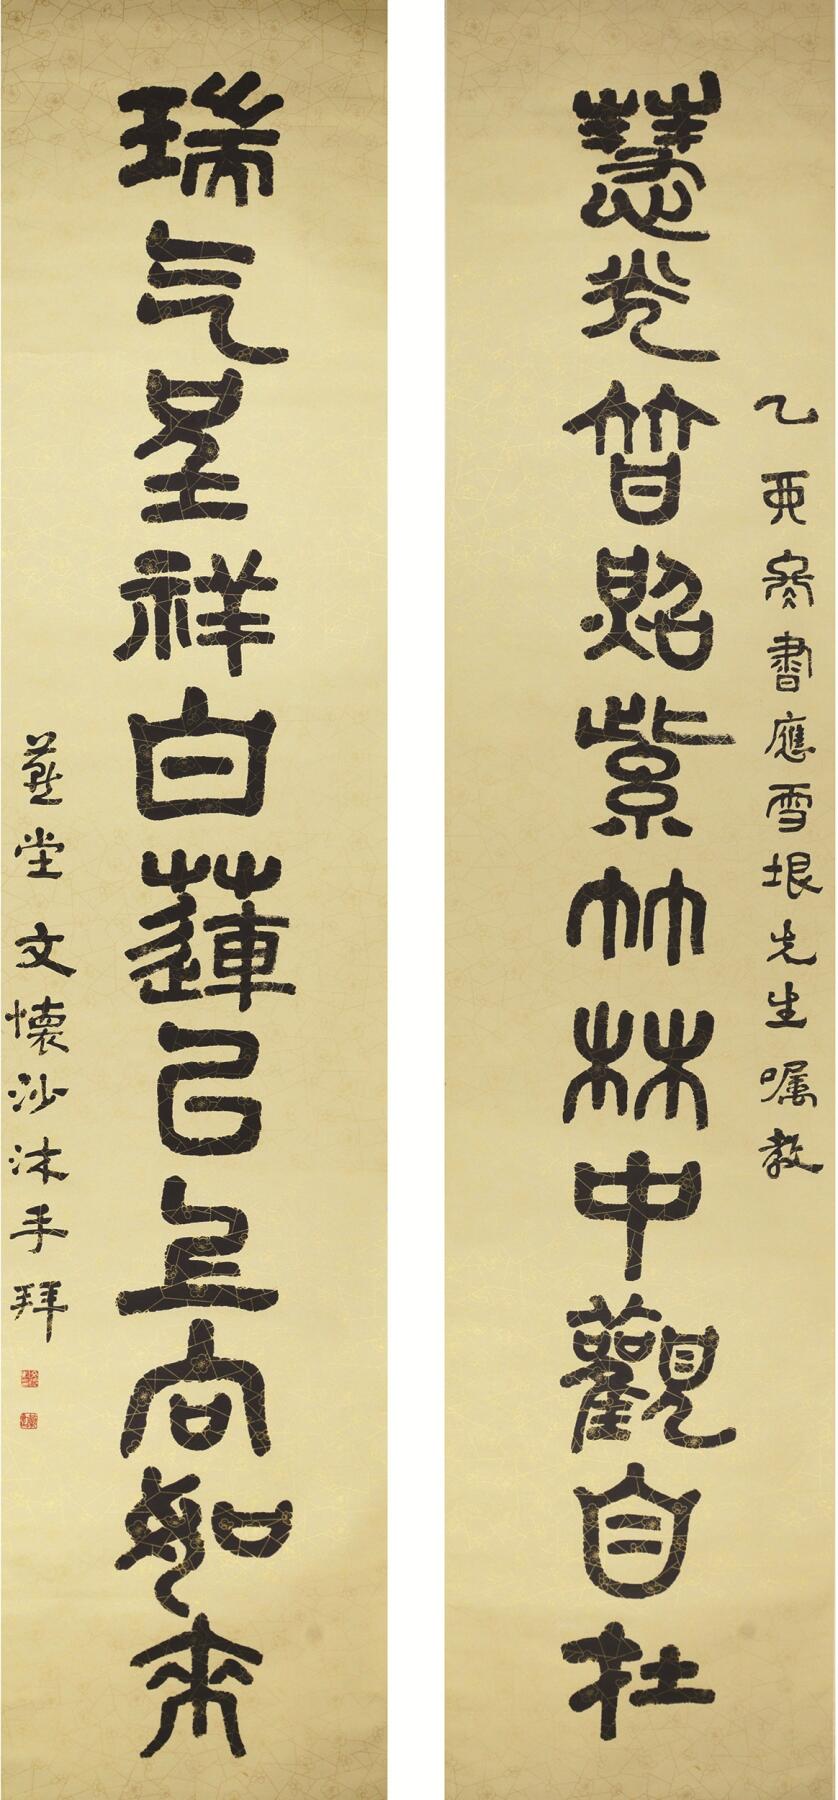 乙亥冬書應雪垠先生嘱教
慧光普照紫竹林中觀自在
瑞气呈祥白蓮以上向如来
燕堂 文懷沙沐手拜